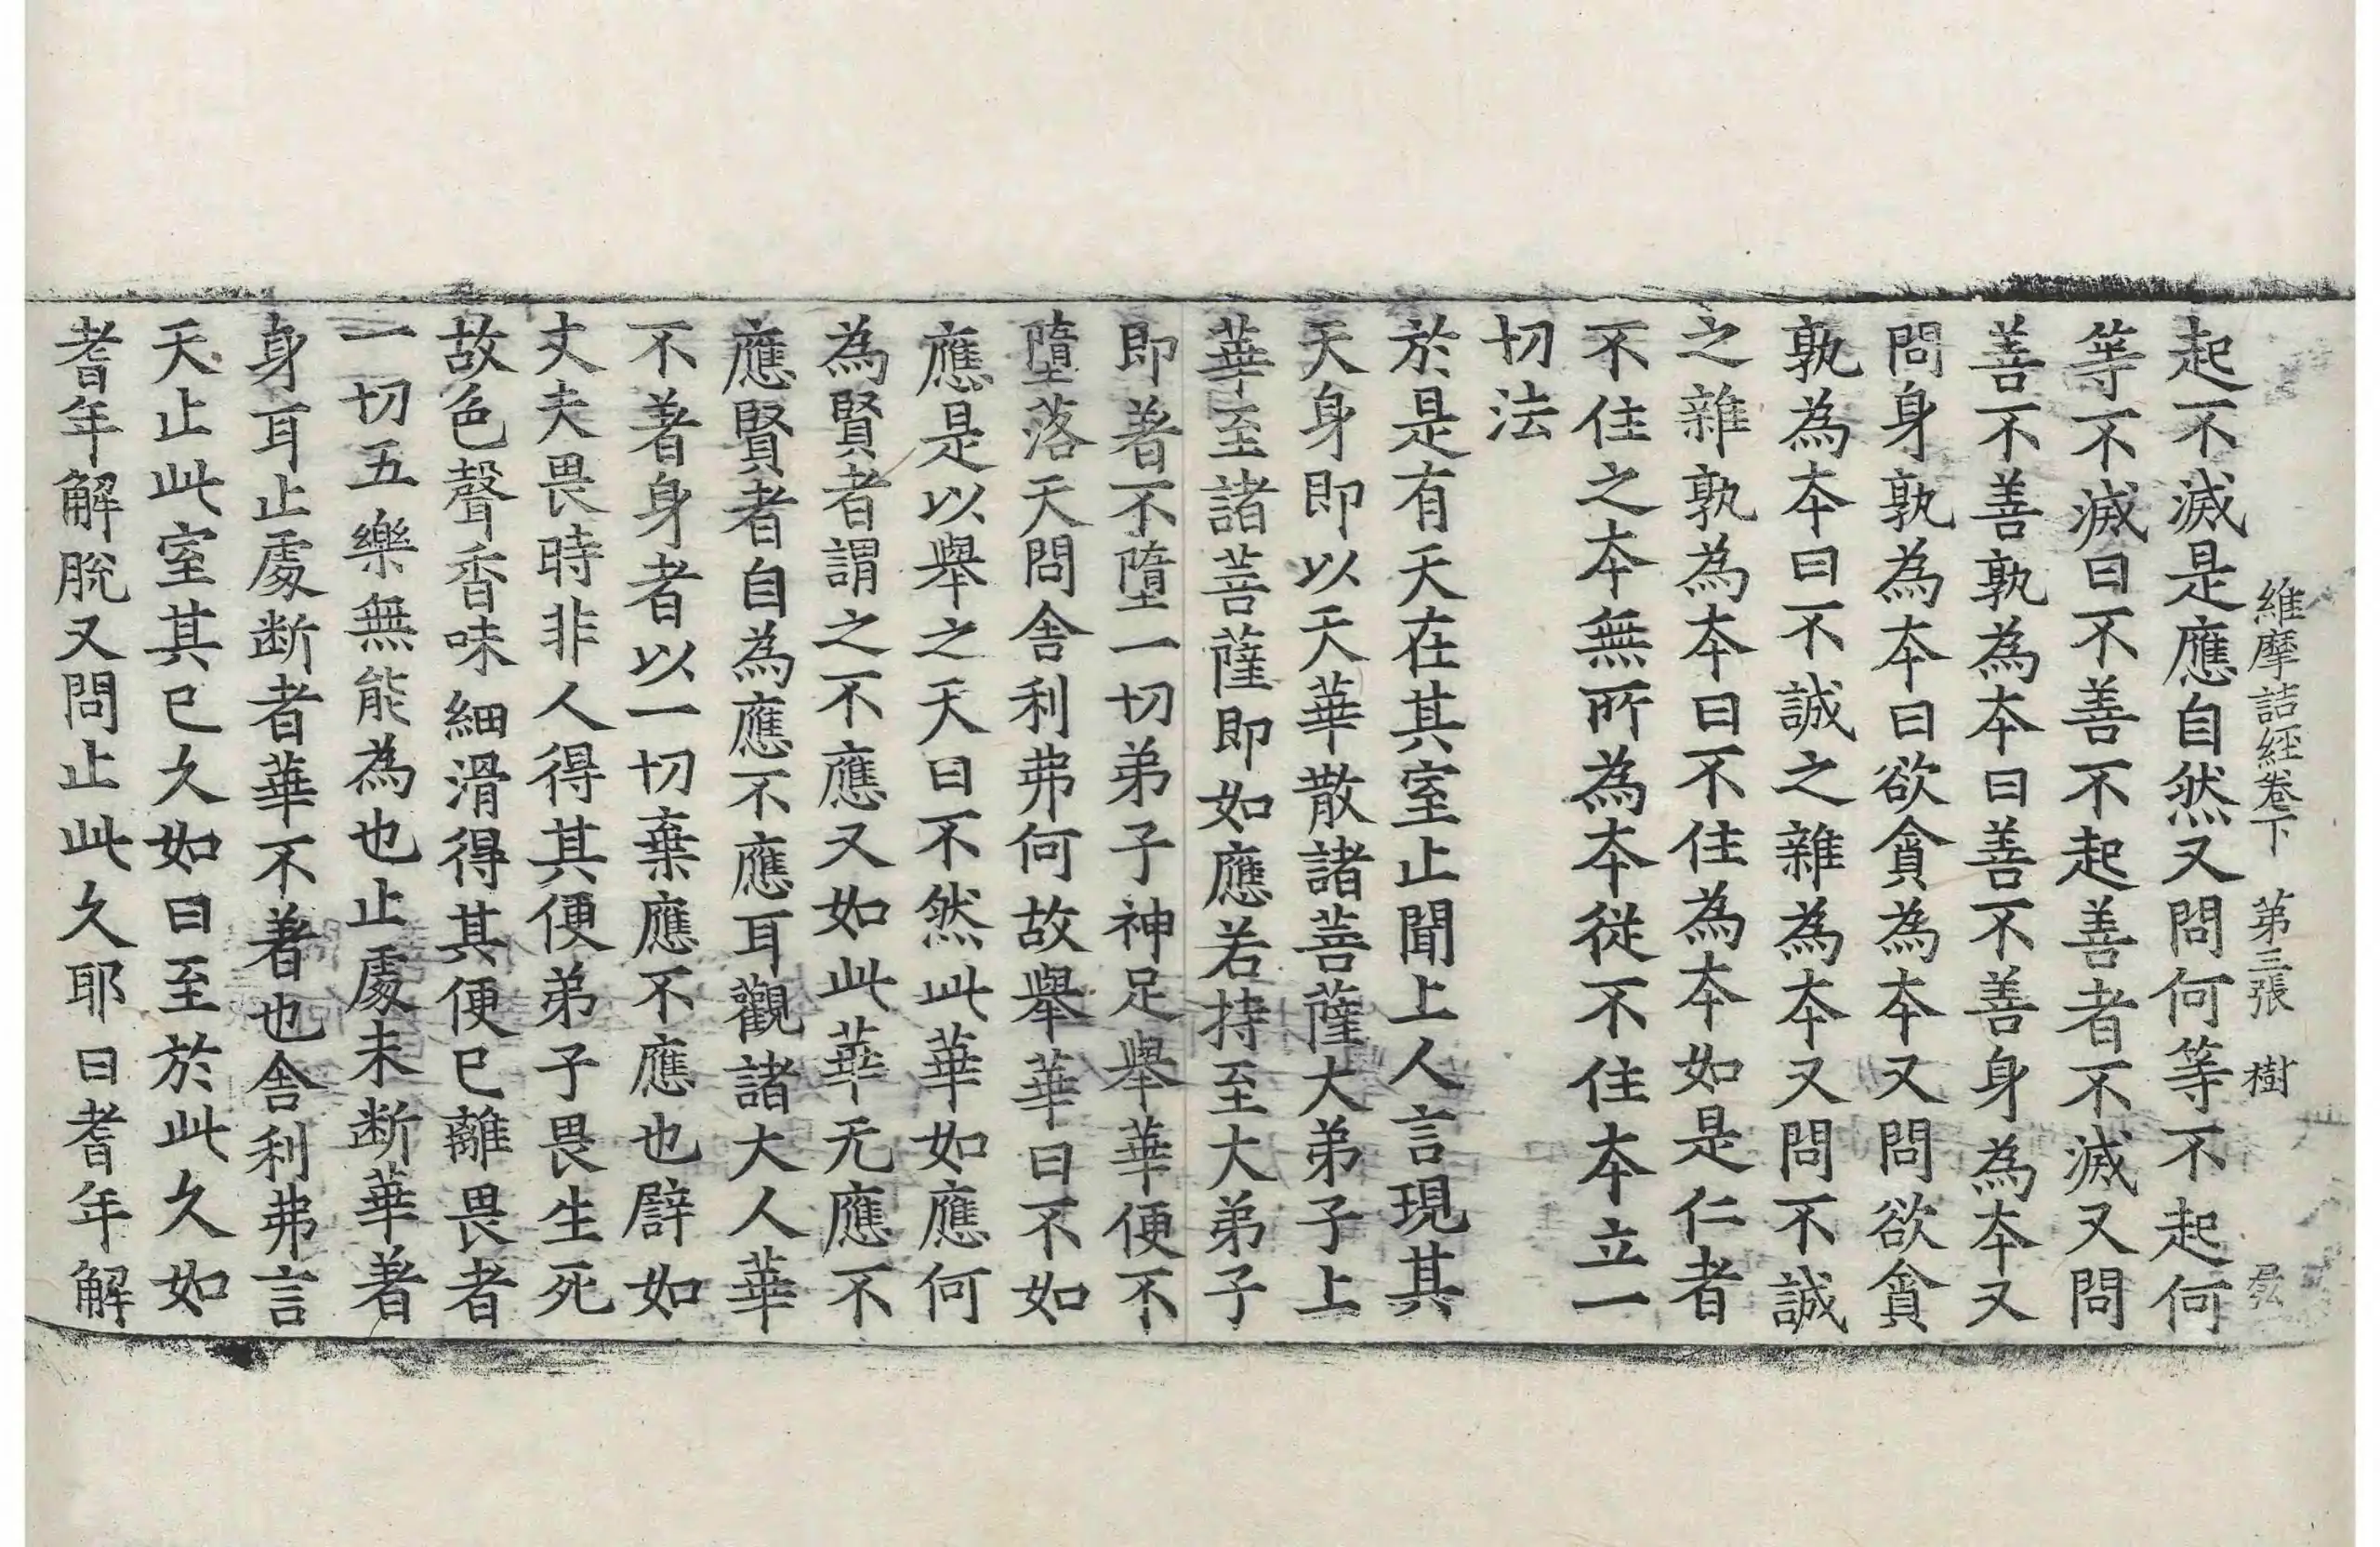 維摩詰經卷下 第三張 樹
起不滅是應自然又問何等不起何
等不滅曰不善不起善者不滅又問
善不善孰為本曰善不善身為本又
問身孰為本曰欲貪為本又問欲貪
孰為本曰不誠之雜為本又問不誠
之雜孰為本曰不住為本如是仁者
不住之本無所為本從不住本立一
切法
於是有天在其室止聞上人言現其
天身即以天華散諸菩薩大弟子上
華至諸菩薩即如應若持至大弟子
即著不墮一切弟子神足舉華便不
墮落天問舍利弗何故舉華曰不如
應是以舉之天曰不然此華如應何
為賢者謂之不應又如此華无應不
應賢者自為應不應耳觀諸大人華
不著身者以一切棄應不應也辟如
丈夫畏時非人得其便弟子畏生死
故色聲香味細滑得其便已離畏者
一切五樂無能為也止處未断華著
身耳止處断者華不著也舍利弗言
天止此室其已久如曰至於此久如
耆年解脫又問止此久耶曰耆年解